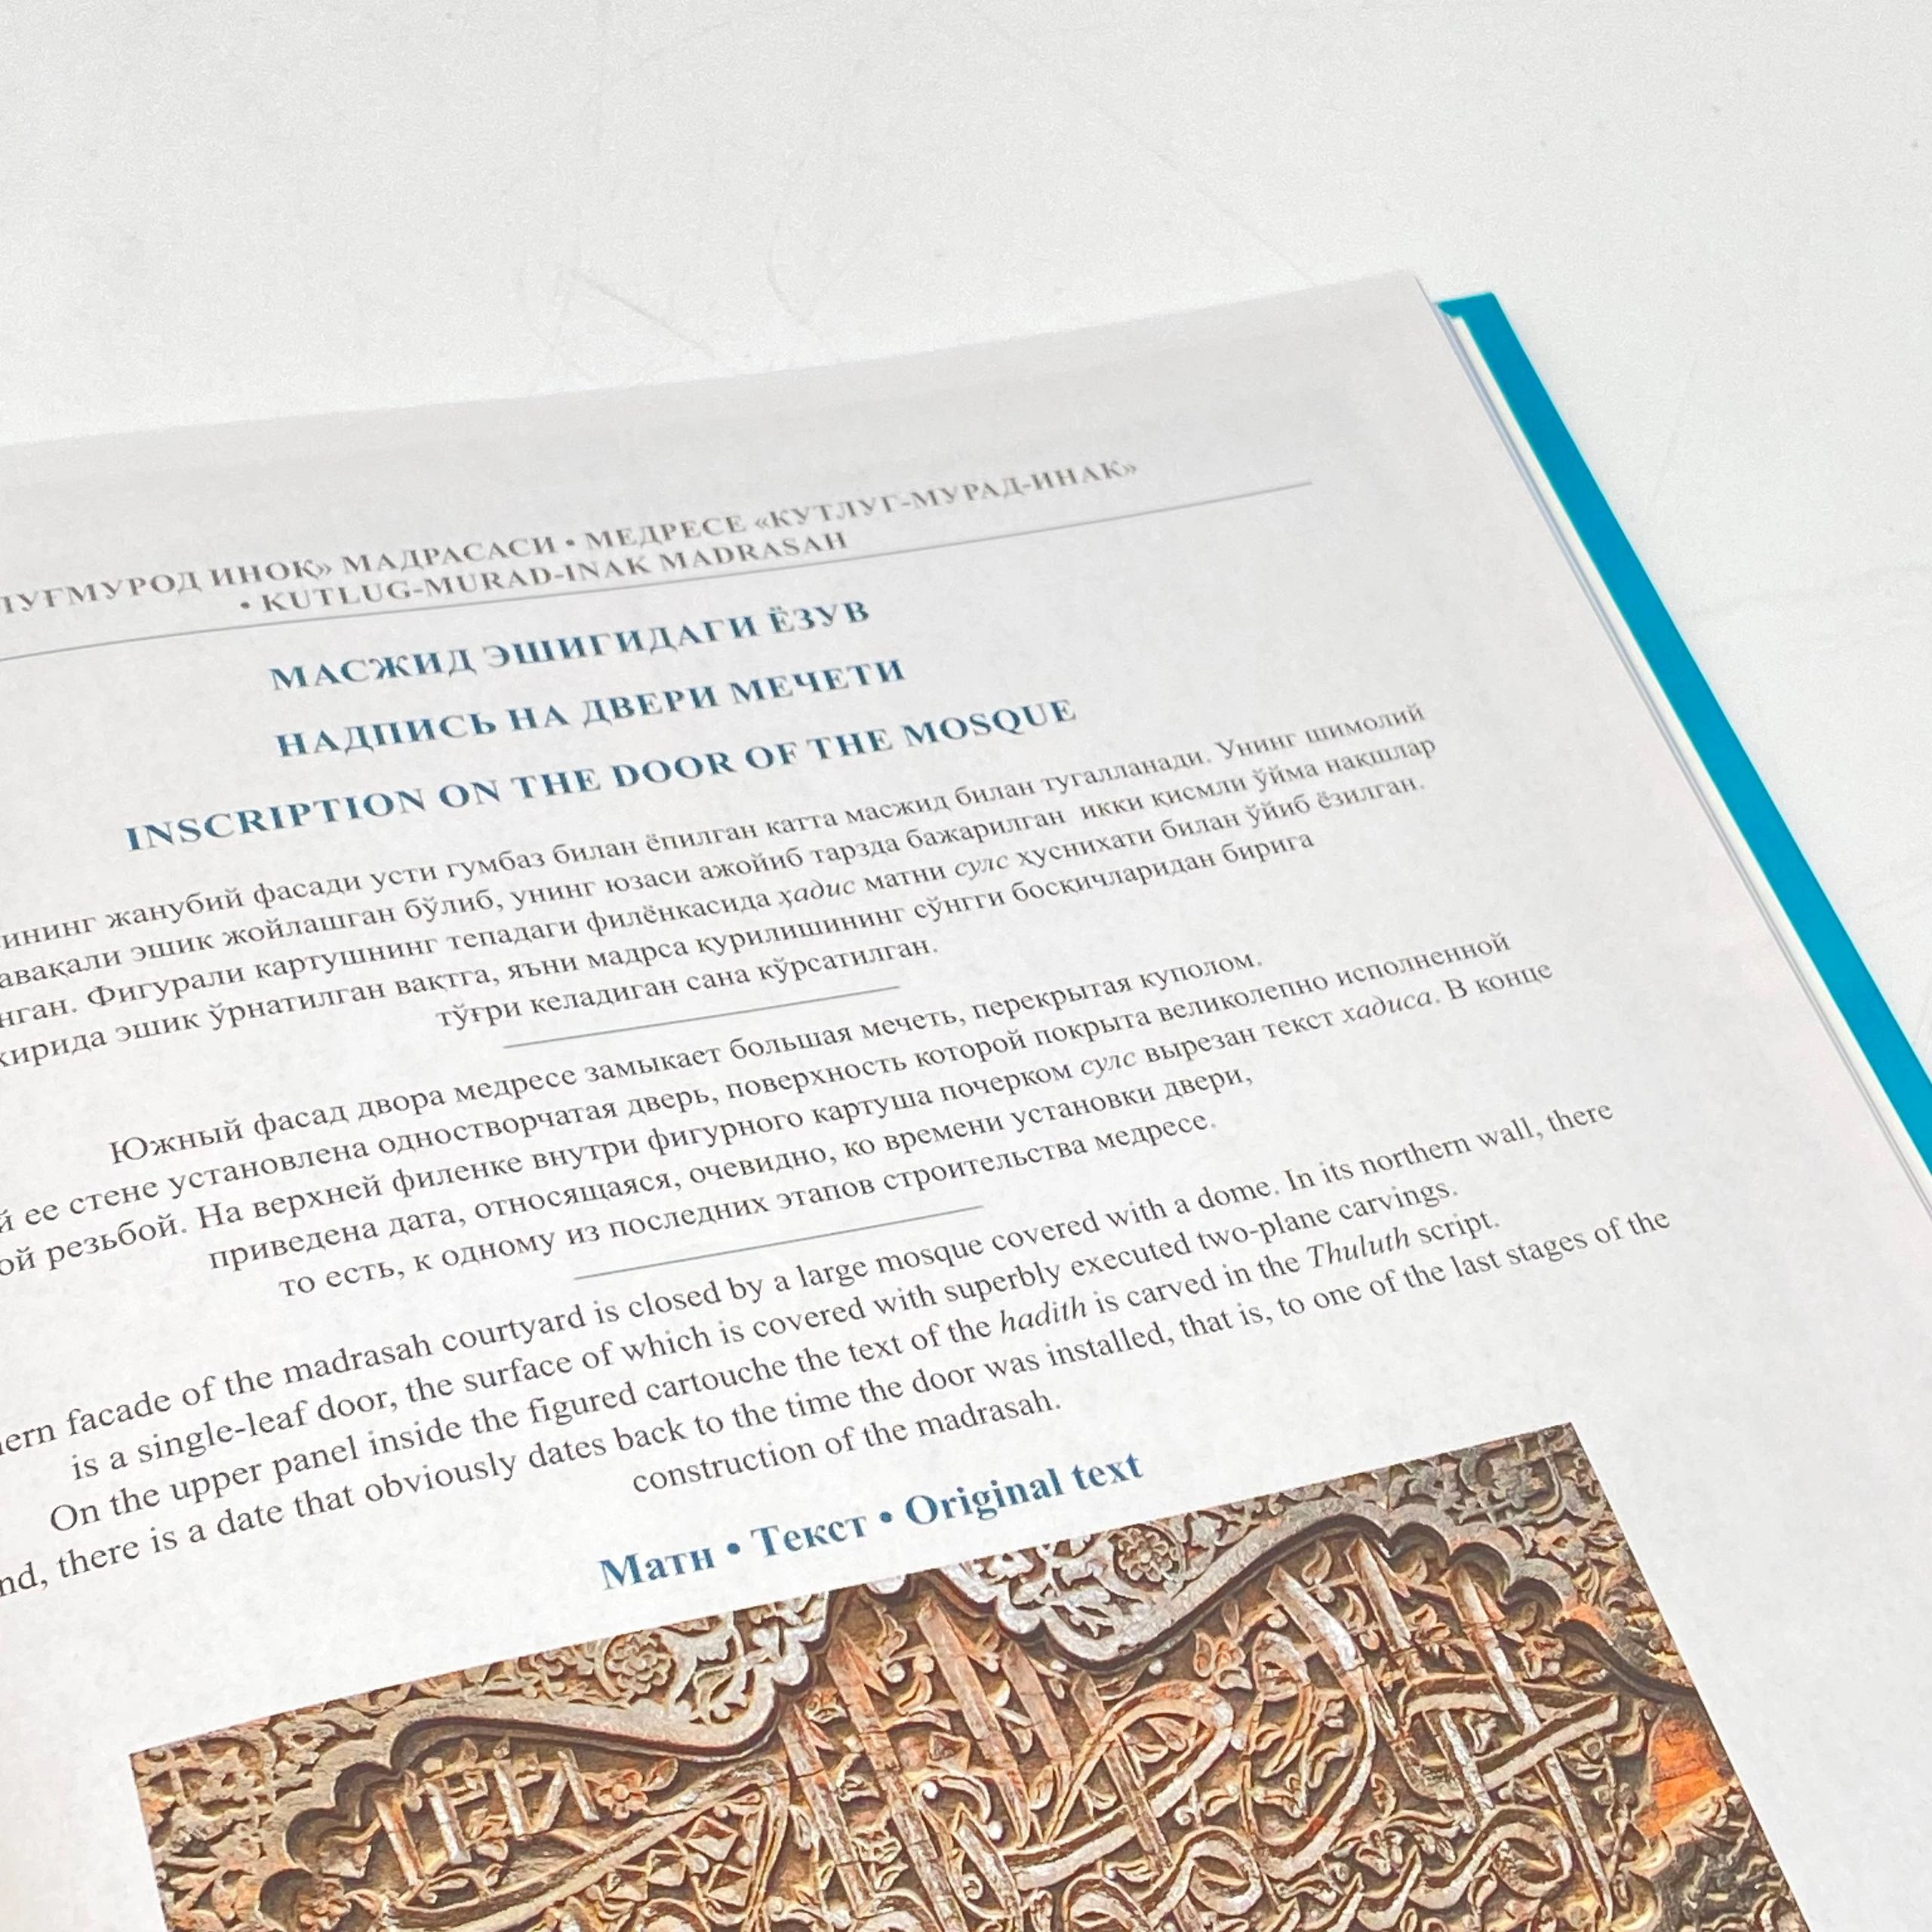 ИНОҚ» МАДРАСАСИ • МЕДРЕСЕ «КУТЛУГ-МУРАД-ИНАК»
• KUTLUG-MURAD-INAK MADRASAH
МАСЖИД ЭШИГИДАГИ ЁЗУВ
НАДПИСЬ НА ДВЕРИ МЕЧЕТИ
INSCRIPTION ON THE DOOR OF THE MOSQUE
жанубий фасади усти гумбаз билан ёпилган катта масжид билан тугалланади. Унинг шимолий
эшик жойлашган бўлиб, унинг юзаси ажойиб тарзда бажарилган икки қисмли ўйма нақшлар
Фигурали картушнинг тепадаги филёнкасида ҳадис матни сулс ҳуснихати билан ўйиб ёзилган.
эшик ўрнатилган вақтга, яъни мадрса қурилишининг сўнгги босқичларидан бирига
тўғри келадиган сана кўрсатилган.
Южный фасад двора медресе замыкает большая мечеть, перекрытая куполом.
ее стене установлена одностворчатая дверь, поверхность которой покрыта великолепно исполненной
резьбой. На верхней филенке внутри фигурного картуша почерком сулс вырезан текст хадиса. В конце
приведена дата, относящаяся, очевидно, ко времени установки двери,
то есть, к одному из последних этапов строительства медресе.
facade of the madrasah courtyard is closed by a large mosque covered with a dome. In its northern wall, there
is a single-leaf door, the surface of which is covered with superbly executed two-plane carvings.
On the upper panel inside the figured cartouche the text of the hadith is carved in the Thuluth script.
there is a date that obviously dates back to the time the door was installed, that is, to one of the last stages of the
construction of the madrasah.
Матн • Текст • Original text